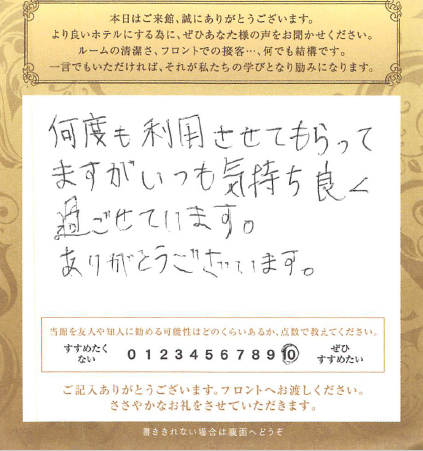 本日はご来館、誠にありがとうございます。
より良いホテルにする為に、ぜひあなた様の声をお聞かせください。
ルームの清潔さ、フロントでの接客…、何でも結構です。
一言でもいただければ、それが私たちの学びとなり励みになります。
何度も利用させてもらって
ますがいつも気持ち良く
過ごせています。
ありがとうございています。
当館を友人や知人に勧める可能性はどのくらいあるか、点数で教えてください。
すすめたくない 0 1 2 3 4 5 6 7 8 9 10 ぜひすすめたい
ご記入ありがとうございます。フロントへお渡しください。
ささやかなお礼をさせていただきます。
書ききれない場合は裏面へどうぞ